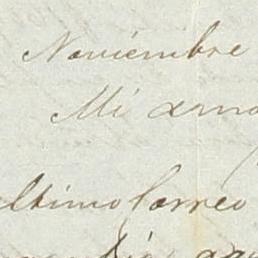 Noviembre
Mi ama
ultimo Correo